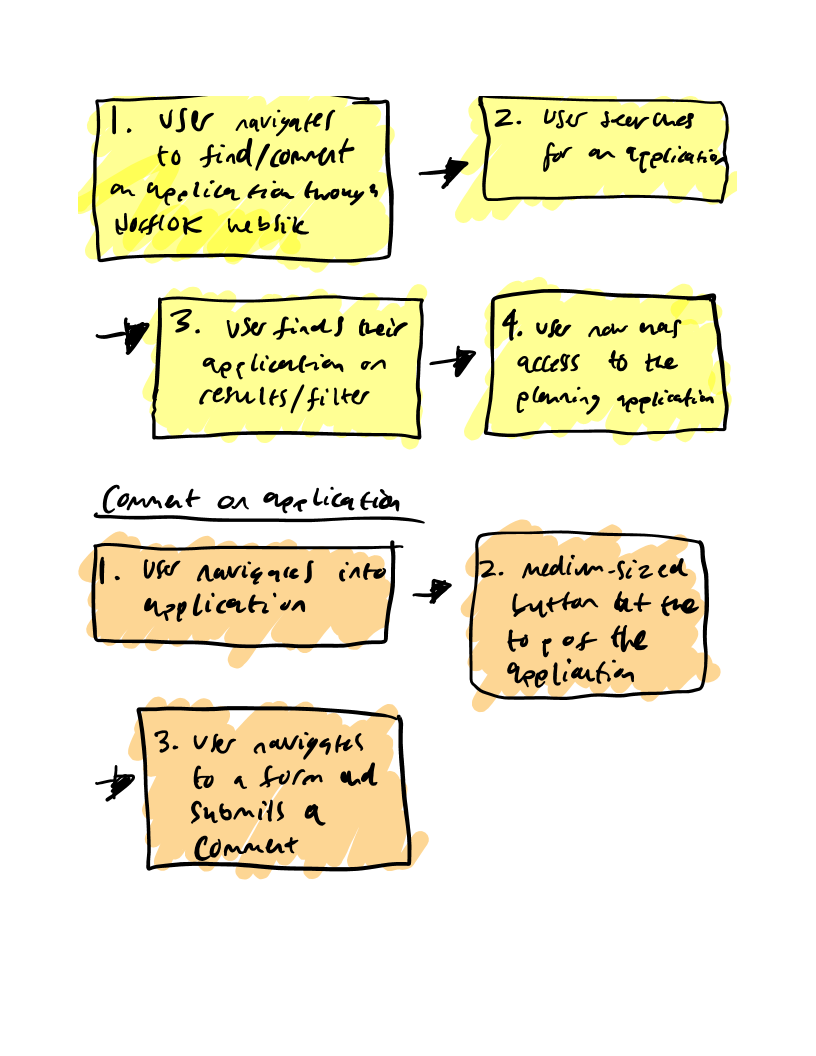 1. User navigates
to find/comment
on application through
Norfolk website
2. User searches
for an application
3. User finds their
application on
results/filter
4. User now has
access to the
planning application
Comment on application
1. User navigates into
application
2. Medium-sized
button but the
top of the
application
3. User navigates
to a form and
submits a
comment